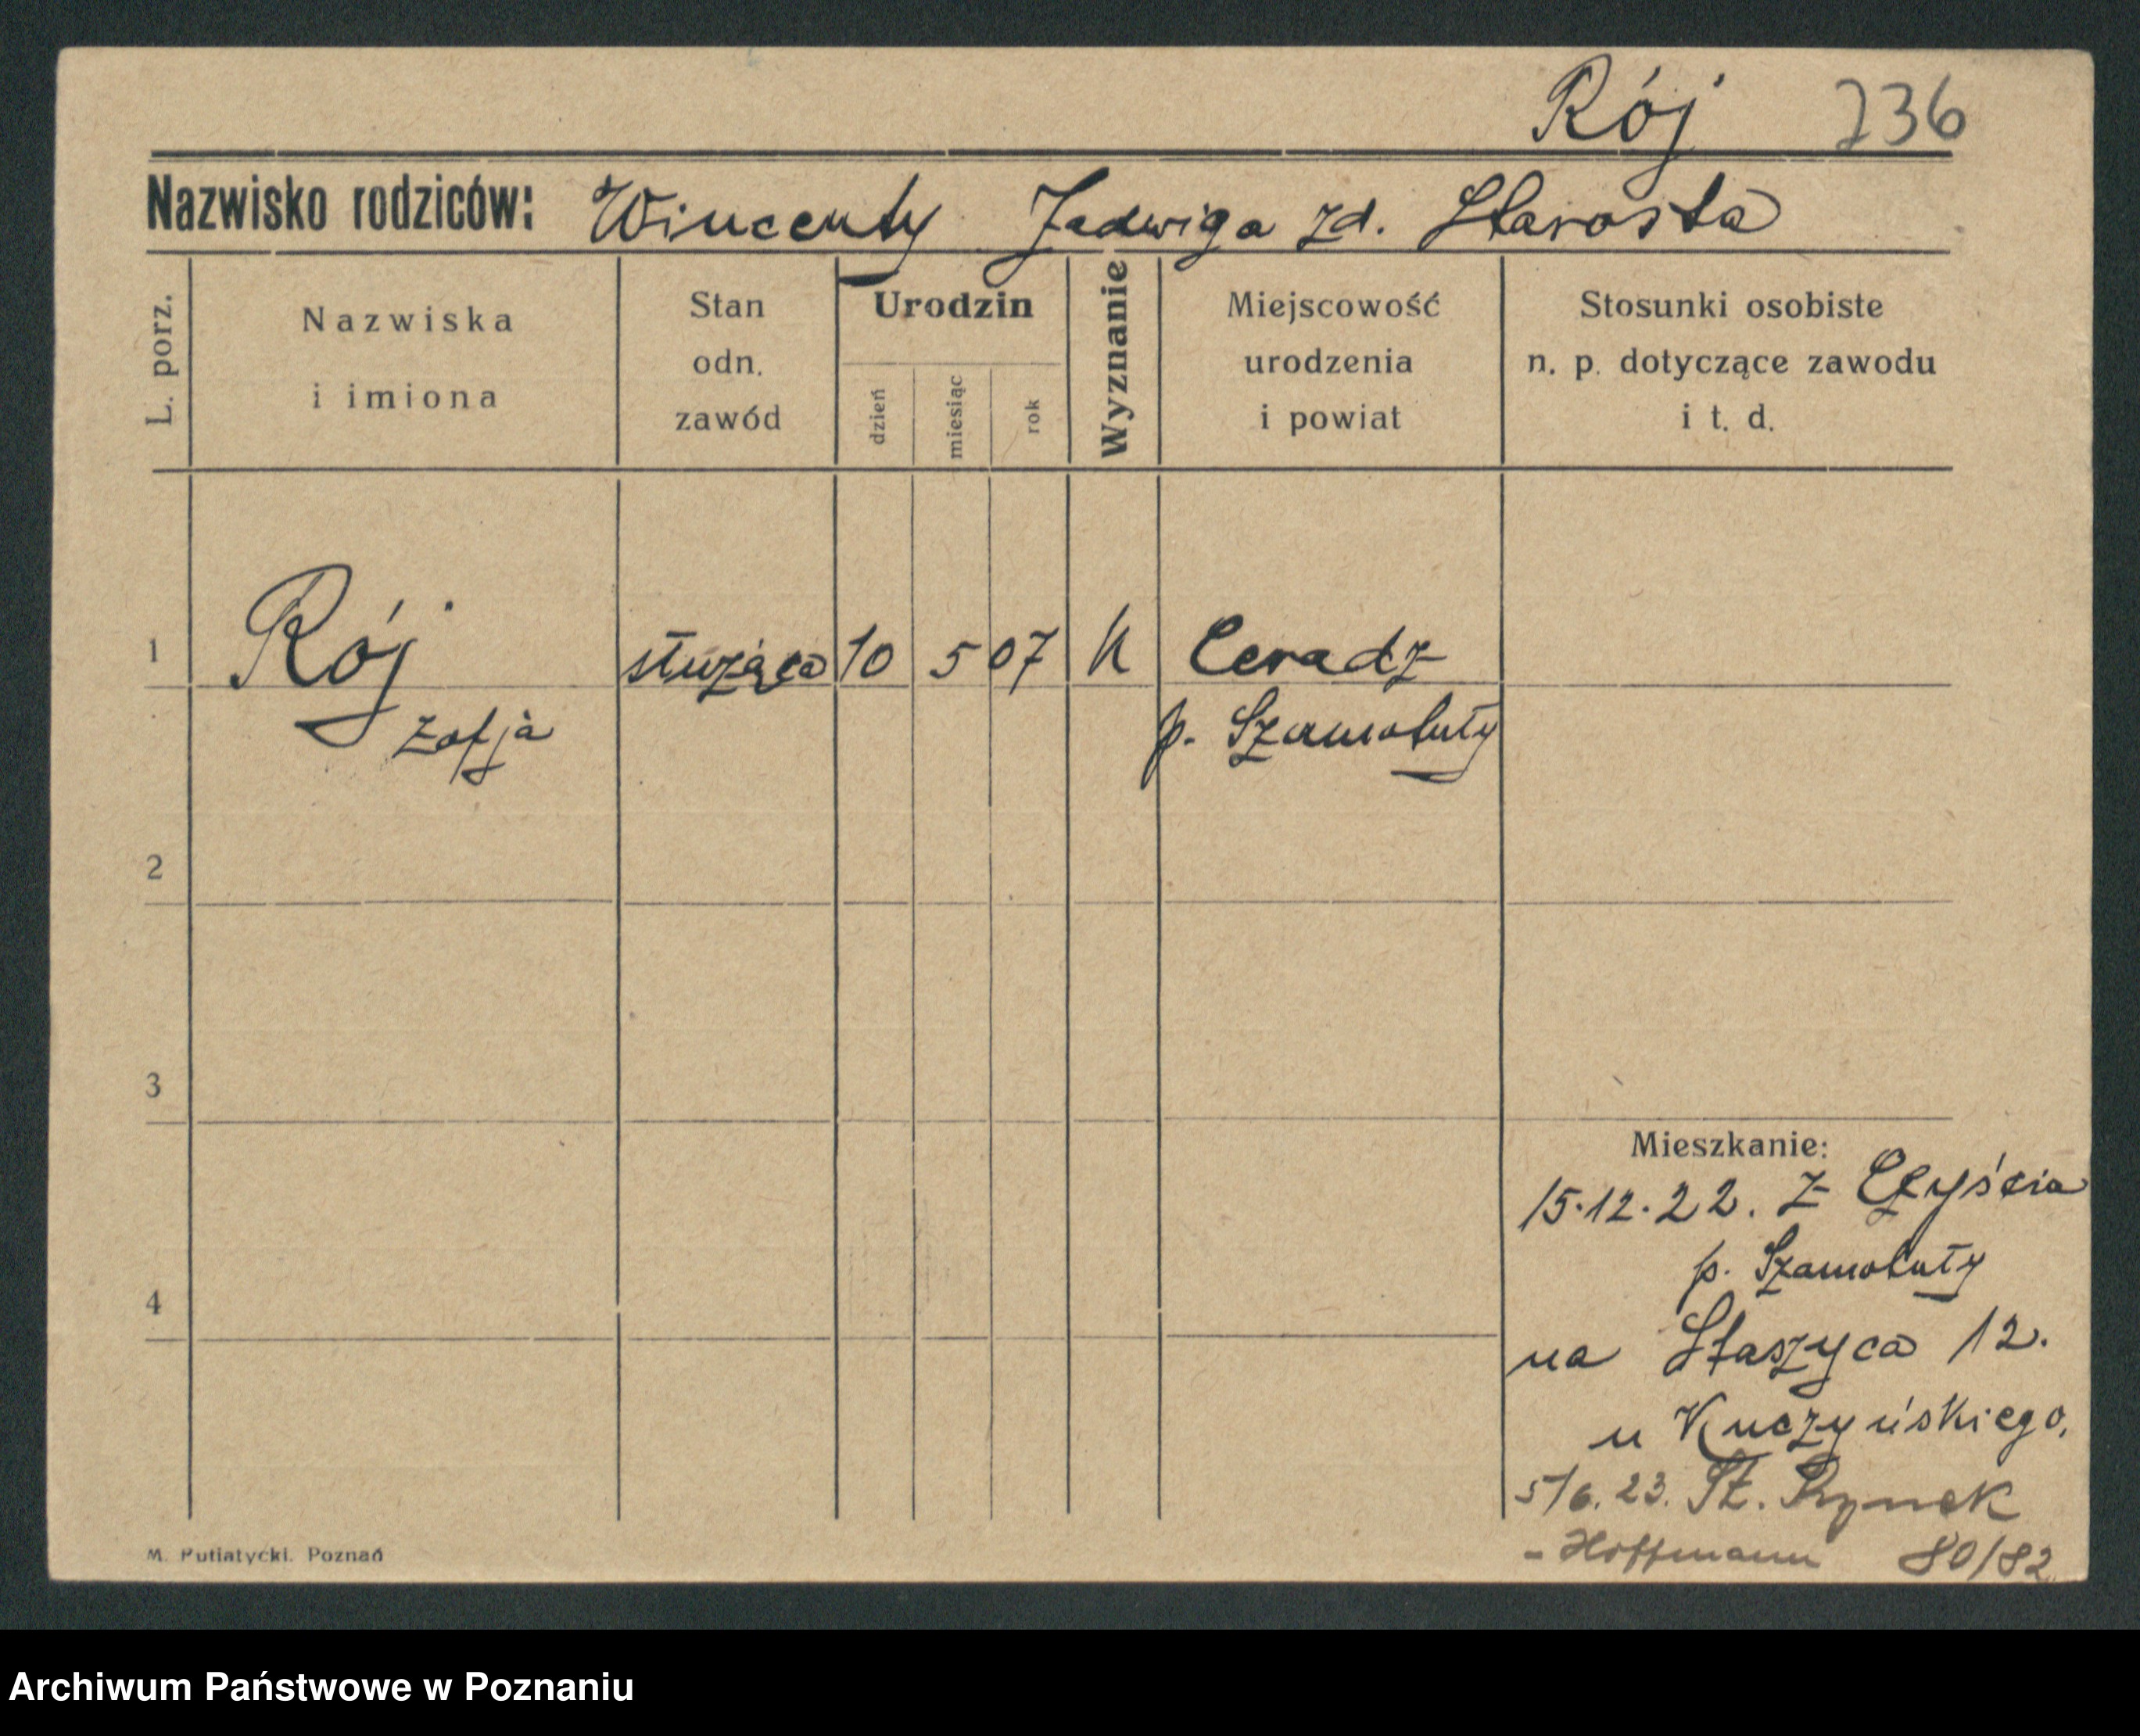 Rój 236
Nazwisko rodziców: Wincenty Jadwiga zd. Starosta
L. porz.
Nazwiska
i imiona
Stan
odn.
zawód
Urodzin
dzień
miesiąc
rok
Wyznanie
Miejscowość
urodzenia
i powiat
Stosunki osobiste
n. p. dotyczące zawodu
i t. d.
1 Rój służąca 10 5 07 k Ceradz
Zofja p. Szamotuły
2
3
Mieszkanie:
15.12.22. z
p. Szamotuły
4
na Staszyca 12.
u Kuczyńskiego,
5/6.23. St. Rynek
- Hoffmann 80/82
M. Putiatycki. Poznań
Archiwum Państwowe w Poznaniu